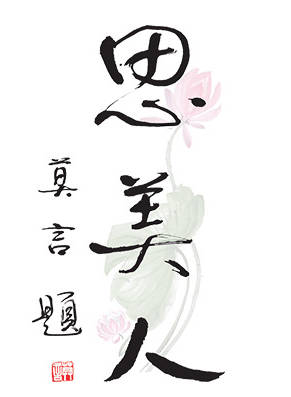 思美人
莫言题